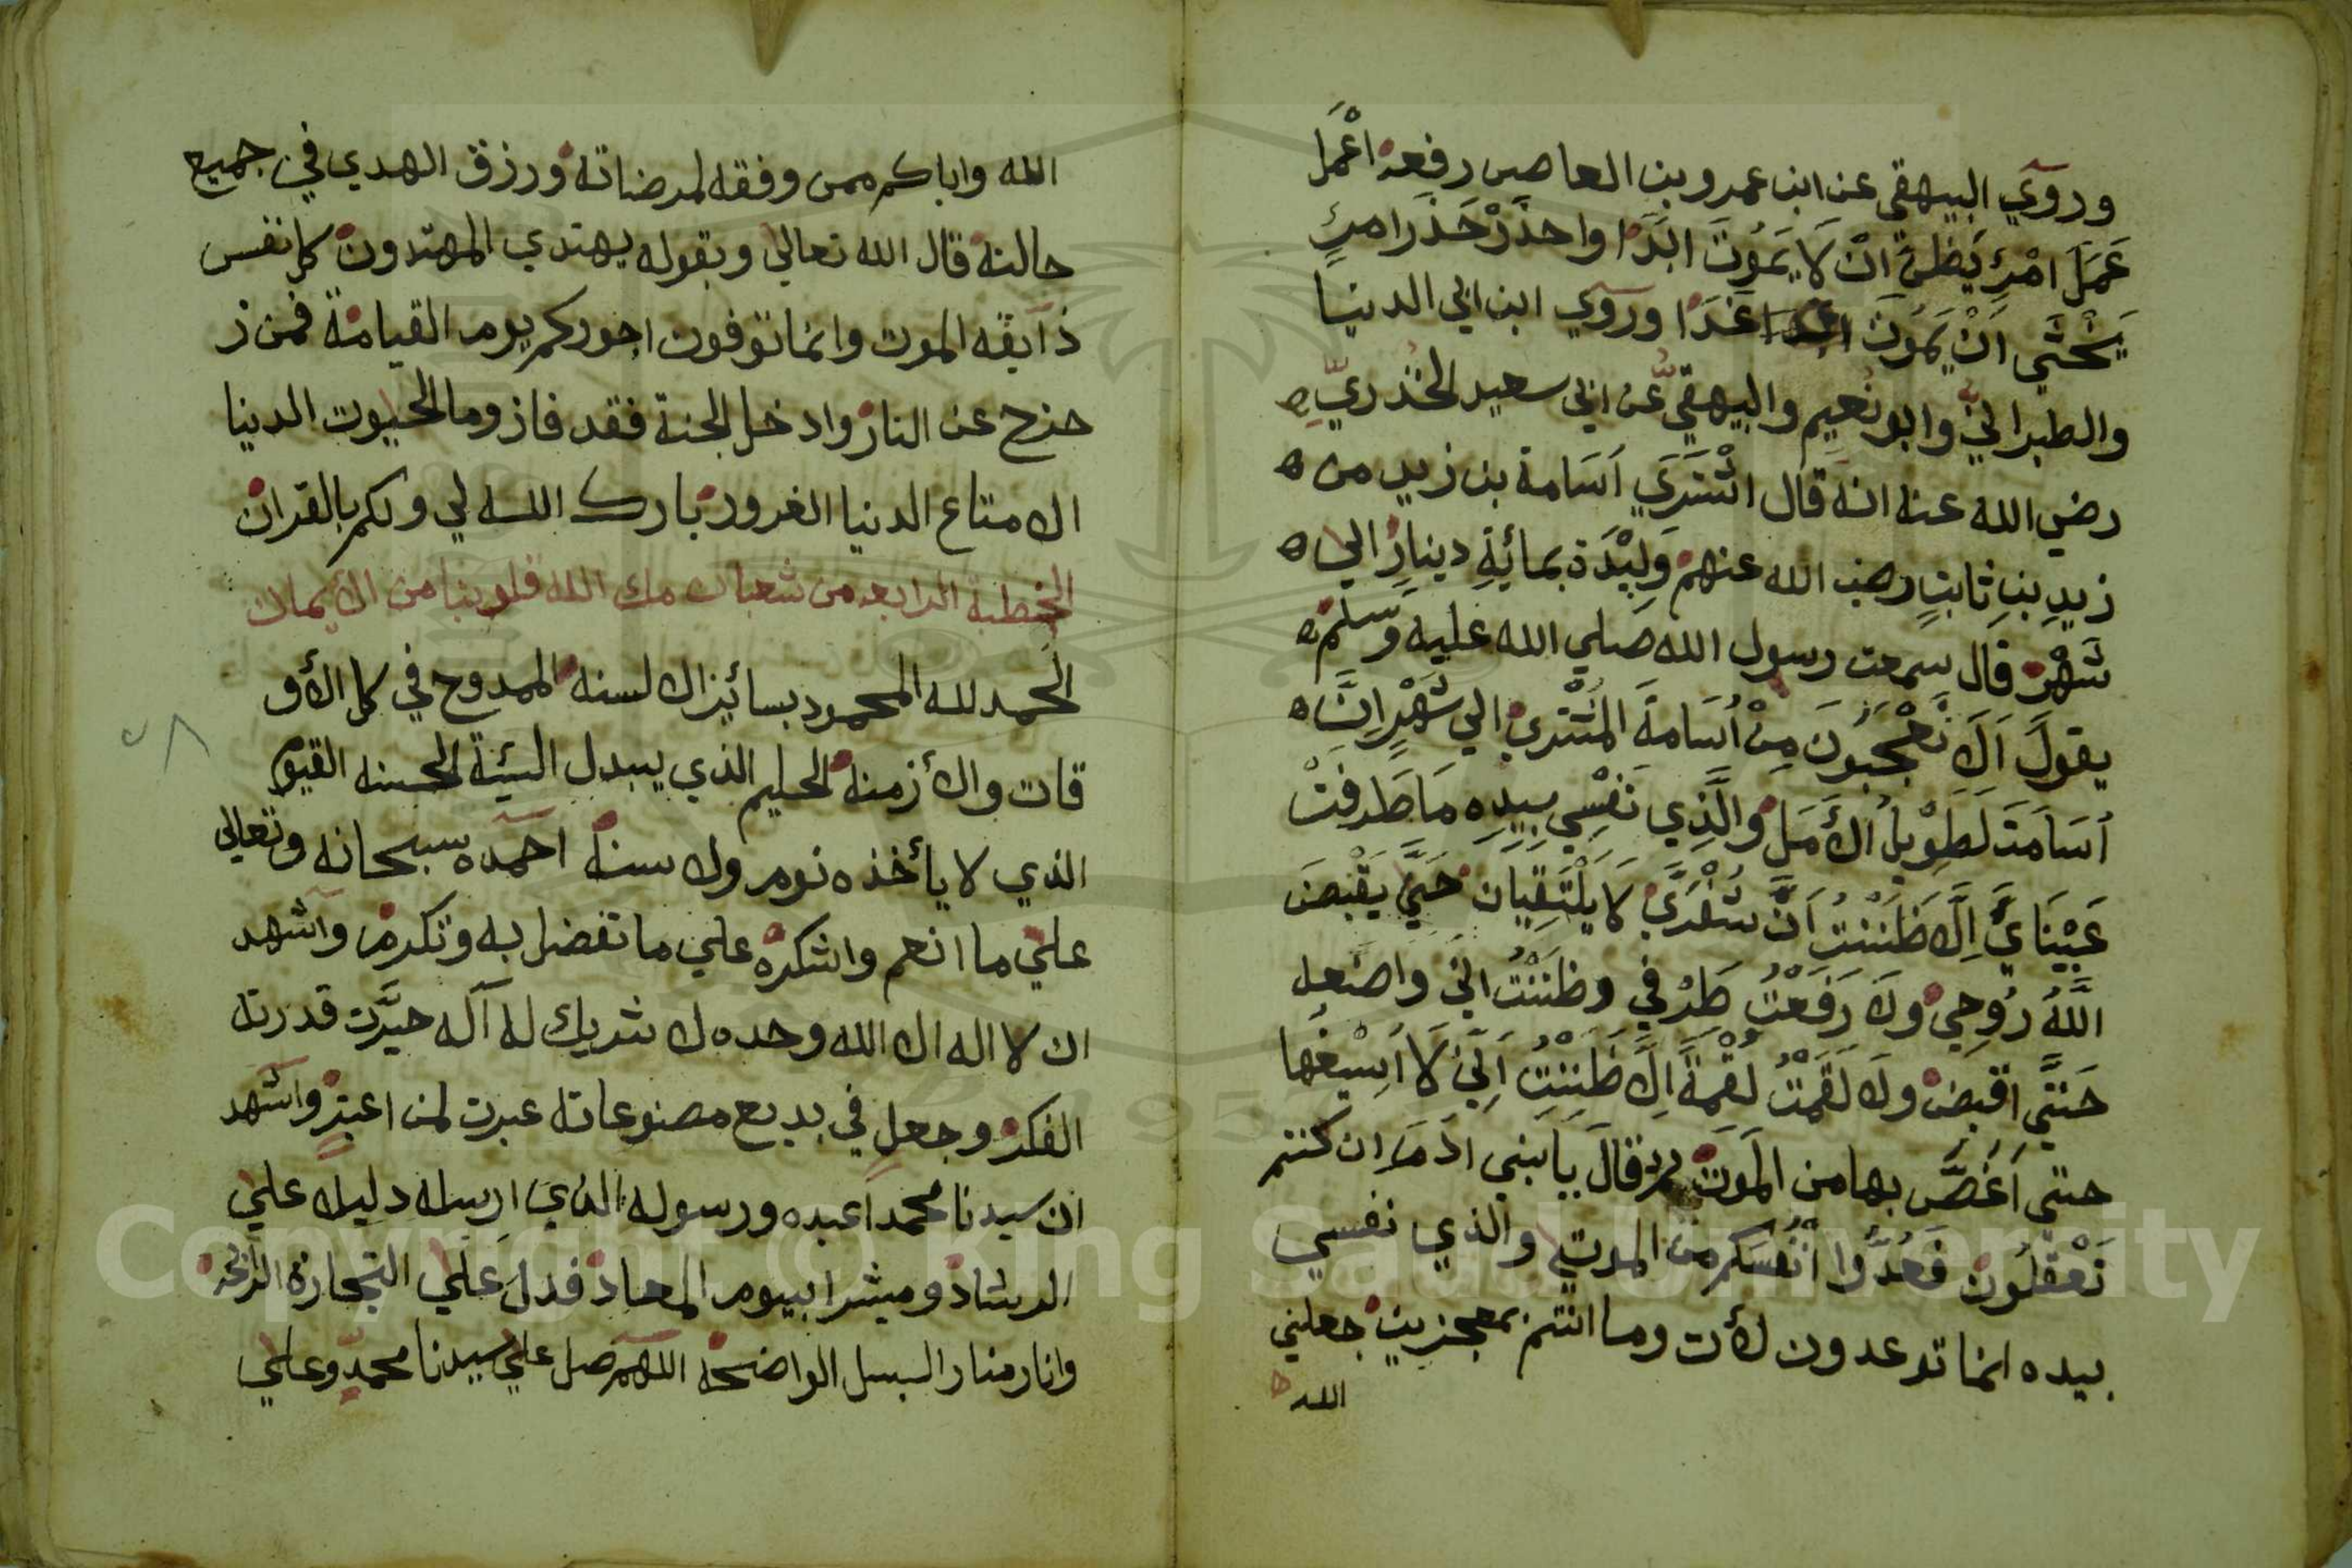 وروي البيهقي عن ابن عمرو بن العاص رفعه اعْمَل
عَمَلَ امْرِئٍ يَظُنُّ انْ لَا يَمُوتَ ابَدًا واحذَرْ حَذَرَ امرِئٍ
يَخْشَي اَنْ يَمُوتَ غَدًا وروي ابن ابي الدنيا
والطبراني وابو نُعيمٍ والبيهقيُّ عن ابي سعيد الخُدريّ
رضي الله عنه انه قال اشْتَرَي اُسَامة بن زيد من
زيدِ بنِ ثابتٍ رضي الله عنهم وَلِيْدَة بمائةِ دينارٍ الي
شَهْرٍ قال سمعت رسول الله صلي الله عليه وسَلم
يقولُ اَلَا تَعْجَبُونَ مِنْ اُسَامةَ المُشْتَرِي الي شَهْرٍ اِنَّ
اُسَامَةَ لَطَوِيْلُ الأَمَلِ والَّذِي نَفْسِي بِيَدِهِ مَا طَرفَتْ
عَيْنَايَ اِلَّا ظَنَنْتُ اَنَّ شُفْرَيَّ لَا يَلْتَقِيَانِ حَتَّي يَقْبِضَ
اللَّهُ رُوحِي ولَا رَفَعْتُ طَرْفي وظَنَنْتُ اني واضعه
حَتَّي اقبض ولَا لَقَمْتُ لُقْمَةً اِلَّا ظَنَنْتُ اَنِّي لَا اَسِيْغُهَا
حتي اَغَصَّ بها من المَوتِ ثم قالَ يا بني ادَمَ ان كنتم
تَعْقِلُون فَعُدُّوا اَنْفُسَكم من الموتي والذي نفسي
بيده انما توعدون لأت وما انتم بمعجزين جعلني
الله
الله واياكم ممن وفقه لمرضاته ورزق الهدي في جميع
حالته قال الله تعالي وبقوله يهتدي المهتدون كل نفس
ذآئقه الموت وانما توفون اجوركم يوم القيامة فمن ز
حزح عن النار وادخل الجنة فقد فاز وما الحيوت الدنيا
الا متاع الدنيا الغرور بارك الله لي ولكم بالقران
الخطبة الرابعه من شعبان ملئ الله قلوبنا من الأيمان
الحمد لله المحمود بسائر الالسنه الممدوح في كل الأو
قات والأزمنه الحليم الذي يبدل السيئة الحسنه القيوم
الذي لا يأخذه نوم ولا سنه احمده سبحانه وتعالي
علي ما انعم واشكره علي ما تفضل به وتكرم واشهد
ان لا اله الا الله وحده لا شريك له آله حيَّرت قدرته
الفكر وجعل في بديع مصنوعاته عبرت لمن اعتبر واشهد
ان سيدنا محمدا عبده ورسوله الذي ارسله دليلا علي
الرشاد ومبشرا بيوم المعاد فدل علي التجارة الرابحه
وانار منار السبل الواضحة اللهم صل علي سيدنا محمد وعلي
Copyright © King Saud University